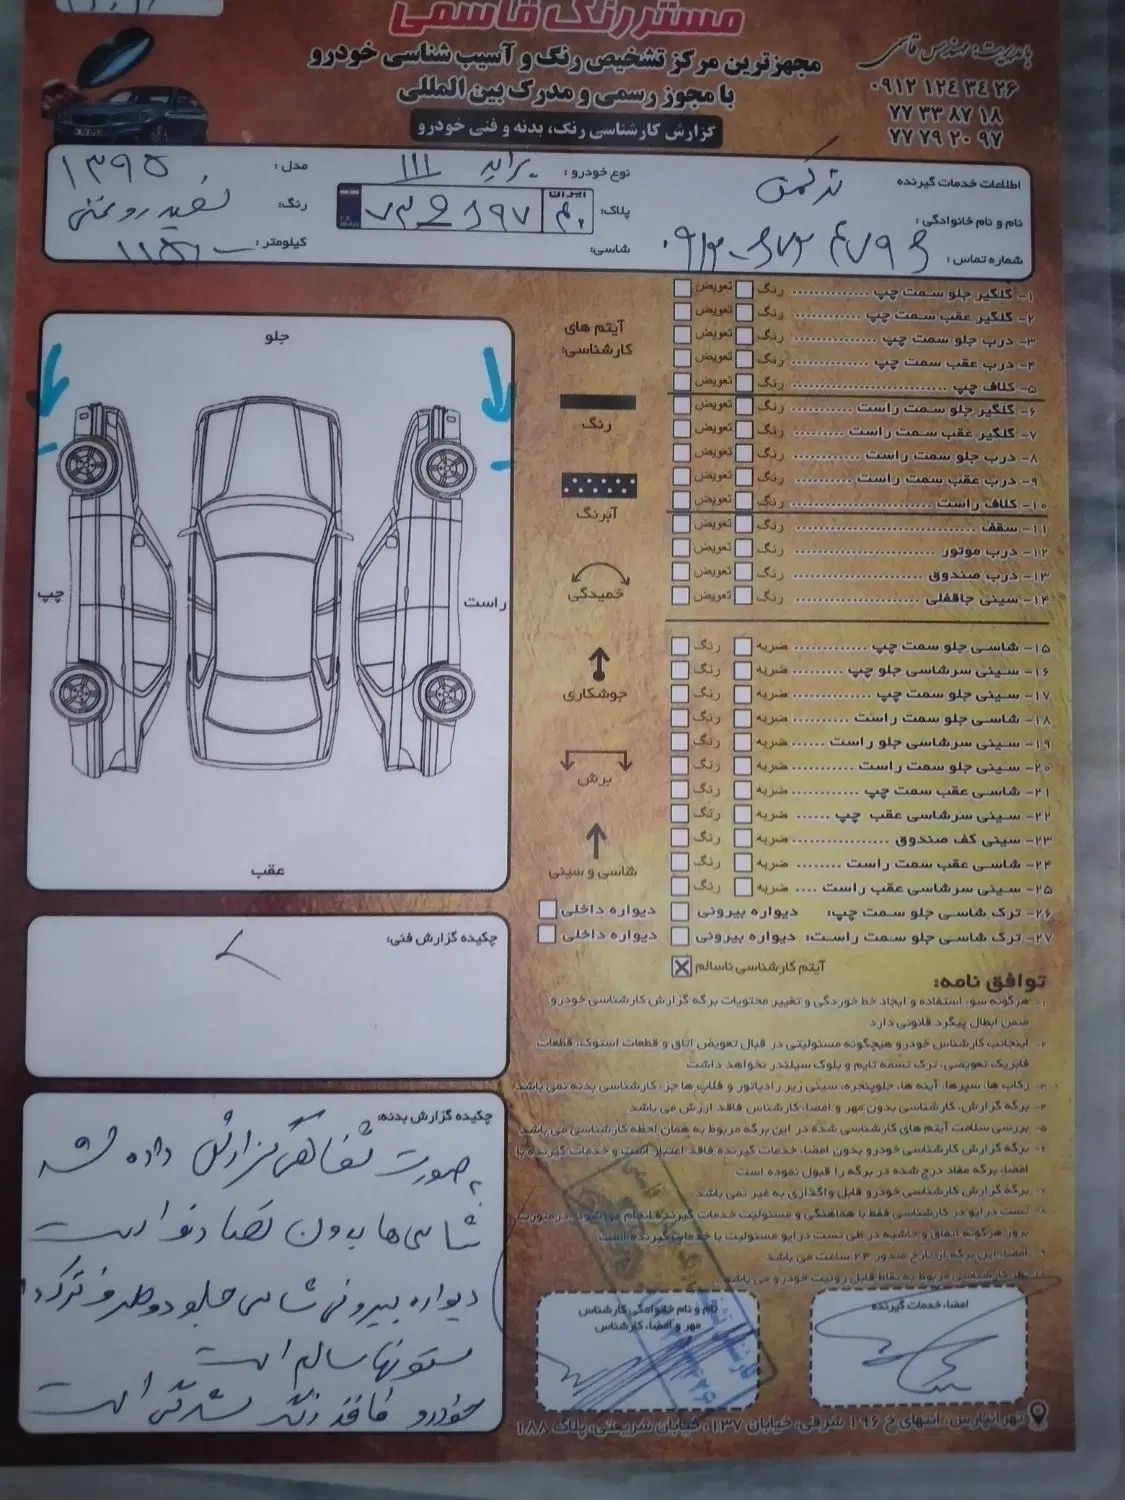 مستر رنگ قاسمی
مجهزترین مرکز تشخیص رنگ و آسیب شناسی خودرو
با مجوز رسمی و مدرک بین المللی
گزارش کارشناسی رنگ، بدنه و فنی خودرو
با مدیریت: مهندس قاسمی
۰۹۱۲ ۱۲۴ ۳۴ ۲۶
۷۷ ۳۳ ۸۷ ۱۸
۷۷ ۷۹ ۲۰ ۹۷
اطلاعات خدمات گیرنده
نام و نام خانوادگی:
شماره تماس:
نوع خودرو: پراید 111
پلاک: ایران
شاسی:
مدل: ۱۳۹۵
رنگ: سفید روغنی
کیلومتر:
۱- گلگیر جلو سمت چپ رنگ تعویض
۲- گلگیر عقب سمت چپ رنگ تعویض
۳- درب جلو سمت چپ رنگ تعویض
۴- درب عقب سمت چپ رنگ تعویض
۵- کلاف چپ رنگ تعویض
۶- گلگیر جلو سمت راست رنگ تعویض
۷- گلگیر عقب سمت راست رنگ تعویض
۸- درب جلو سمت راست رنگ تعویض
۹- درب عقب سمت راست رنگ تعویض
۱۰- کلاف راست رنگ تعویض
۱۱- سقف رنگ تعویض
۱۲- درب موتور رنگ تعویض
۱۳- درب صندوق رنگ تعویض
۱۴- سینی جاقفلی رنگ تعویض
۱۵- شاسی جلو سمت چپ ضربه رنگ
۱۶- سینی سرشاسی جلو چپ ضربه رنگ
۱۷- سینی جلو سمت چپ ضربه رنگ
۱۸- شاسی جلو سمت راست ضربه رنگ
۱۹- سینی سرشاسی جلو راست ضربه رنگ
۲۰- سینی جلو سمت راست ضربه رنگ
۲۱- شاسی عقب سمت چپ ضربه رنگ
۲۲- سینی سرشاسی عقب چپ ضربه رنگ
۲۳- سینی کف صندوق ضربه رنگ
۲۴- شاسی عقب سمت راست ضربه رنگ
۲۵- سینی سرشاسی عقب راست ضربه رنگ
۲۶- ترک شاسی جلو سمت چپ: دیواره بیرونی دیواره داخلی
۲۷- ترک شاسی جلو سمت راست: دیواره بیرونی دیواره داخلی
آیتم کارشناسی ناسالم
آیتم های
کارشناسی:
رنگ
آبرنگ
خمیدگی
جوشکاری
برش
شاسی و سینی
جلو
چپ
راست
عقب
چکیده گزارش فنی:
چکیده گزارش بدنه:
بصورت شفاهی گزارش داده شد
شاسی‌ها بدون تصادف است
دیواره بیرونی شاسی جلو دو طرف ترک دارد
ستونها سالم است
خودرو فاقد رنگ شدگی است
توافق نامه:
۱- هرگونه سو، استفاده و ایجاد خط خوردگی و تغییر محتویات برگه گزارش کارشناسی خودرو
ضمن ابطال پیگرد قانونی دارد
۲- اینجانب کارشناس خودرو هیچگونه مسئولیتی در قبال تعویض اتاق و قطعات استوک، قطعات
فابریک تعویضی، ترک تسمه تایم و بلوک سیلندر نخواهد داشت
۳- رکاب ها، سپرها، آینه ها، جلوپنجره، سینی زیر رادیاتور و فلاپ ها جز، کارشناسی بدنه نمی باشد
۴- برگه گزارش، کارشناسی بدون مهر و امضا، کارشناس فاقد ارزش می باشد
۵- بررسی سلامت آیتم های کارشناسی شده در این برگه مربوط به همان لحظه کارشناسی می باشد
۶- برگه گزارش کارشناسی خودرو بدون امضا، خدمات گیرنده فاقد اعتبار است و خدمات گیرنده با
امضا، برگه مفاد درج شده در برگه را قبول نموده است
۷- برگه گزارش کارشناسی خودرو قابل واگذاری به غیر نمی باشد
۸- تست درایو در کارشناسی فقط با هماهنگی و مسئولیت خدمات گیرنده انجام می شود. در صورت
بروز هرگونه اتفاق و حاشیه در طی تست درایو مسئولیت با خدمات گیرنده است
۹- امضا، این برگه از تاریخ صدور ۲۴ ساعت می باشد
نظر کارشناسی مربوط به نقاط قابل رویت خودرو می باشد
امضا، خدمات گیرنده
نام و نام خانوادگی کارشناس
مهر و امضا، کارشناس
تهرانپارس، انتهای خ ۱۹۶ شرقی، خیابان ۱۳۷، خیابان شریعتی، پلاک ۱۸۸